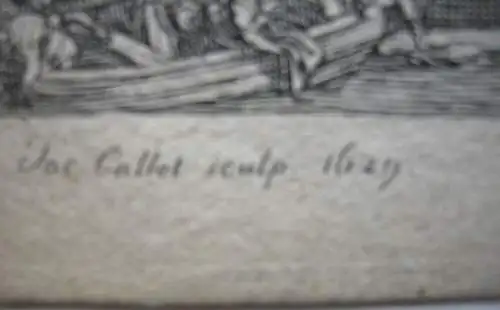 Jac Callot sculp. 1629